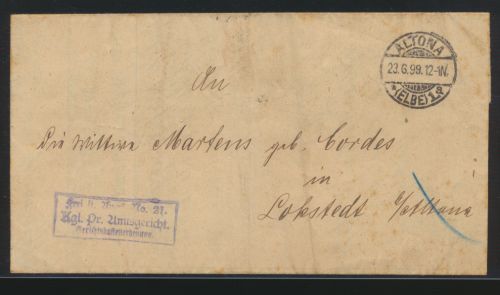 ALTONA
23.6.99.12-1N.
*(ELBE)1.e
An
Die Wittwe Martens geb. Cordes
in
Lokstedt b/Altona
Frei lt. Avers No. 21.
Kgl. Pr. Amtsgericht.